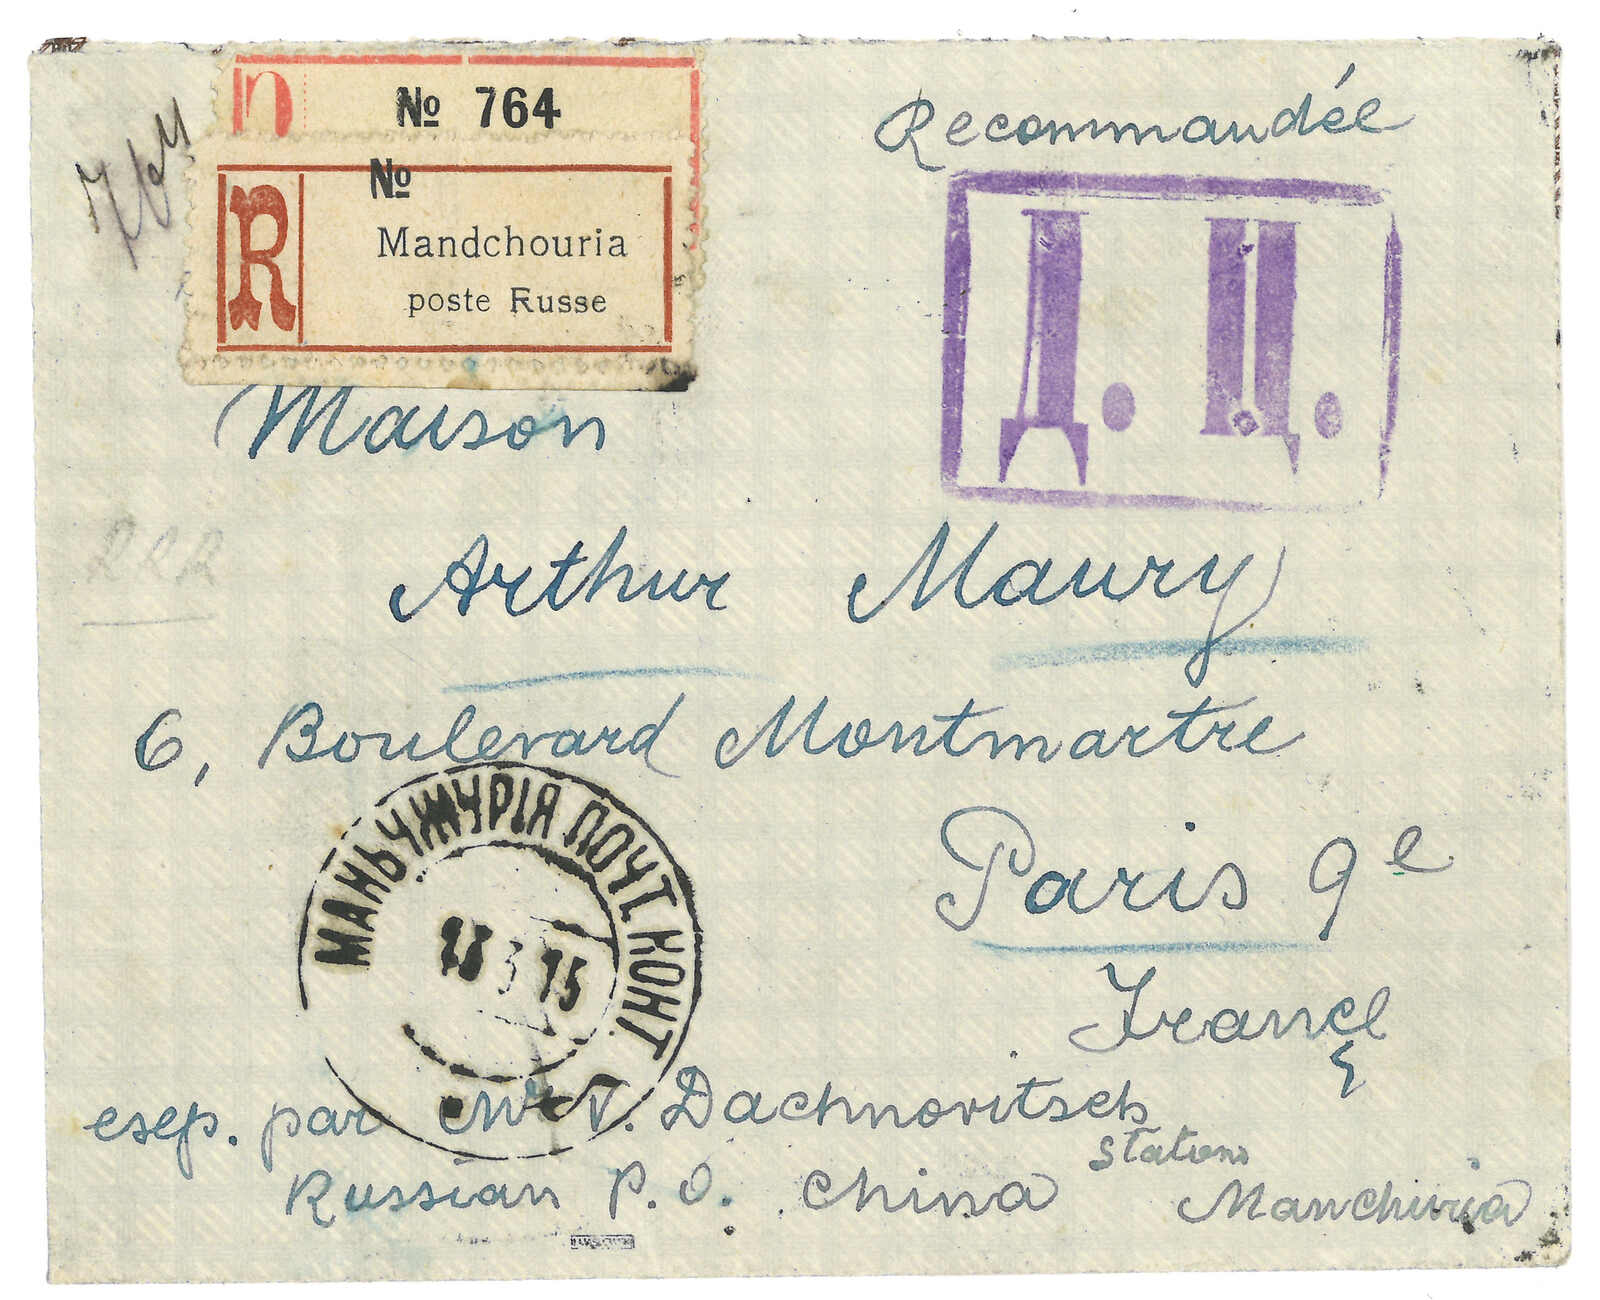 № 764
764
Recommandée
№
R
Mandchouria
poste Russe
Д. Ц.
Maison
RRR
Arthur Maury
6, Boulevard Montmartre
Paris 9e
France
МАНЬЧЖУРІЯ ПОЧТ. КОНТ.
3 15
exp. par V. Dachnovitsch
Station
Russian P. O. China Manchuria